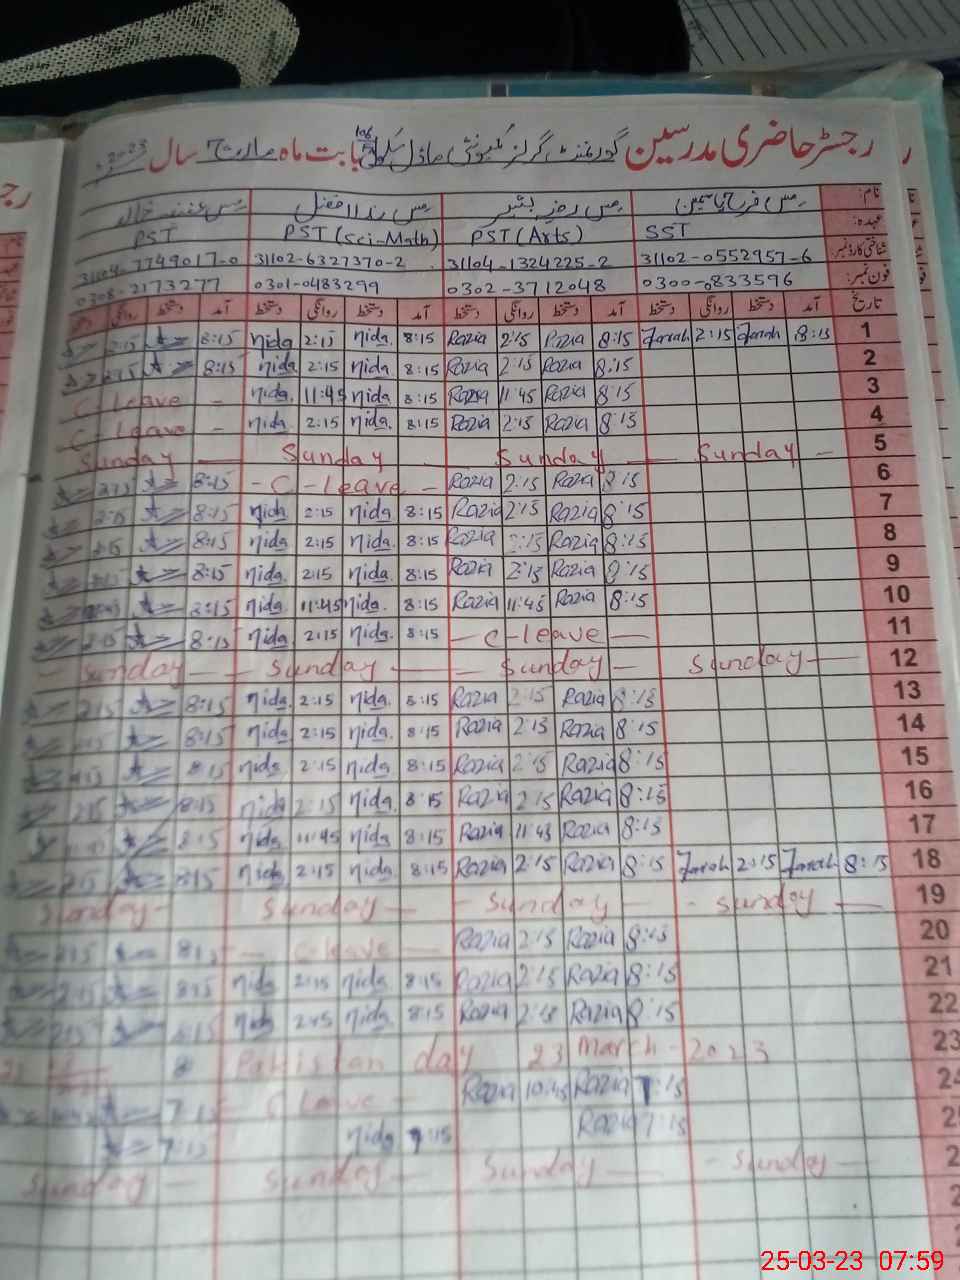 رجسٹر حاضری مدرسین گورنمنٹ گرلز کمیونٹی ماڈل سکول بابت ماہ مارچ سال 2023
نام: مس فرح یاسمین مس رضیہ بشیر مس ندا افضل مس
عہدہ: SST PST (Arts) PST (Sci-Math) PST
شناختی کارڈ نمبر: 31102-0552957-6 31104-1324225-2 31102-6327370-2 31104-7749017-0
فون نمبر: 0300-0833596 0302-3712048 0301-0483299 0308-2173277
تاریخ آمد دستخط روانگی دستخط آمد دستخط روانگی دستخط آمد دستخط روانگی دستخط آمد دستخط روانگی
8:15 Nida 2:15 Nida 8:15 Razia 2:15 Razia 8:15 Farah 2:15 Farah 8:15 1
2:15 8:15 Nida 2:15 Nida 8:15 Razia 2:15 Razia 8:15 2
C-leave - Nida 11:45 Nida 8:15 Razia 11:45 Razia 8:15 3
C-leave - Nida 2:15 Nida 8:15 Razia 2:15 Razia 8:15 4
Sunday - Sunday - Sunday - Sunday - 5
2:15 8:15 - C-leave - Razia 2:15 Razia 8:15 6
2:15 8:15 Nida 2:15 Nida 8:15 Razia 2:15 Razia 8:15 7
2:15 8:15 Nida 2:15 Nida 8:15 Razia 2:15 Razia 8:15 8
8:15 Nida 2:15 Nida 8:15 Razia 2:15 Razia 8:15 9
8:15 Nida 11:45 Nida 8:15 Razia 11:45 Razia 8:15 10
2:15 8:15 Nida 2:15 Nida 8:15 - C-leave - 11
- Sunday - Sunday - Sunday - Sunday - 12
2:15 8:15 Nida 2:15 Nida 8:15 Razia 2:15 Razia 8:15 13
8:15 Nida 2:15 Nida 8:15 Razia 2:15 Razia 8:15 14
2:15 8:15 Nida 2:15 Nida 8:15 Razia 2:15 Razia 8:15 15
2:15 8:15 Nida 2:15 Nida 8:15 Razia 2:15 Razia 8:15 16
8:15 Nida 11:45 Nida 8:15 Razia 11:45 Razia 8:15 17
2:15 8:15 Nida 2:15 Nida 8:15 Razia 2:15 Razia 8:15 Farah 2:15 Farah 8:15 18
Sunday - Sunday - Sunday - Sunday - 19
2:15 8:15 - C-leave - Razia 2:15 Razia 8:15 20
2:15 8:15 Nida 2:15 Nida 8:15 Razia 2:15 Razia 8:15 21
2:15 8:15 Nida 2:15 Nida 8:15 Razia 2:15 Razia 8:15 22
Pakistan day 23 March-2023 23
7:15 - C-leave - Razia 10:45 Razia 7:15 24
7:15 Nida 7:15 Razia 7:15
Sunday - Sunday - Sunday - Sunday -
25-03-23 07:59